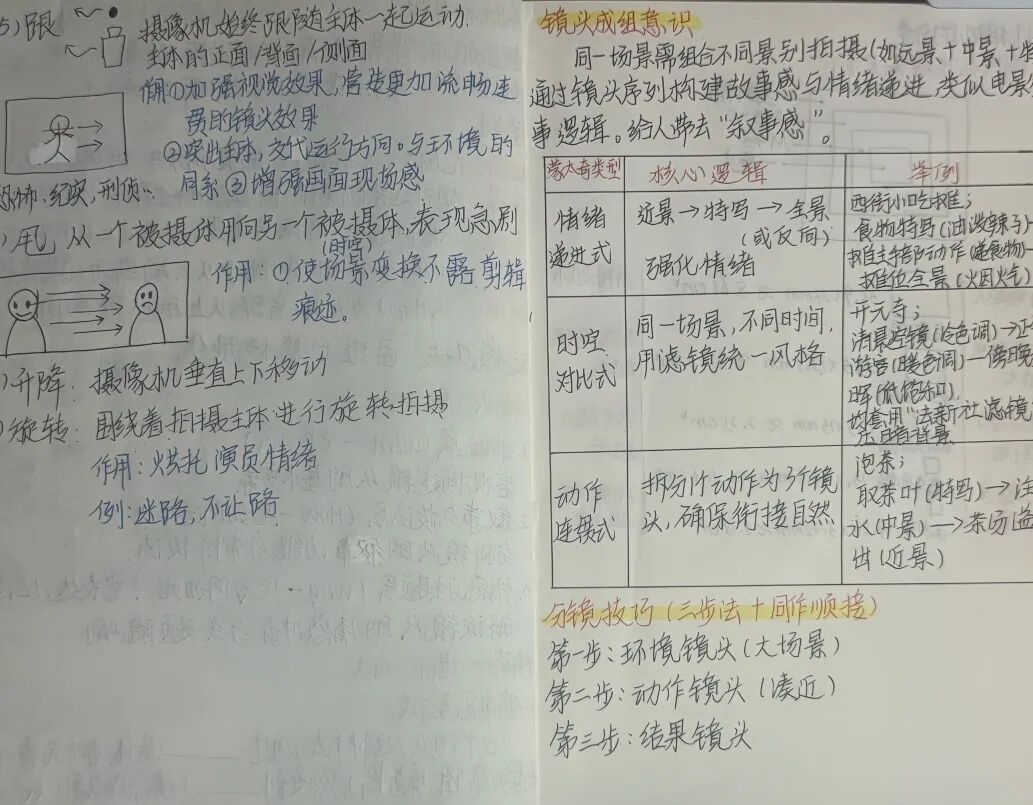 5）跟
摄像机始终跟随主体一起运动.
主体的正面/背面/侧面
作用①加强视觉效果,营造更加流畅连
贯的镜头效果
②突出主体,交代运行方向。与主环境的
同系 ③增强画面现场感
恐怖,纪实,刑侦…
）甩,从一个被摄体甩向另一个被摄体,表现急剧
(时空)
作用:①使场景变换不露剪辑
痕迹。
）升降:摄像机垂直上下移动
）旋转:围绕着拍摄主体进行旋转拍摄
作用:烘托演员情绪
例:迷路,不让路
镜头成组意识
同一场景需组合不同景别拍摄(如远景+中景+特
通过镜头序列构建故事感与情绪递进,类似电影
事逻辑。给人带去“叙事感”。
蒙太奇类型 核心逻辑 举例
情绪
递进式
近景→特写→全景
(或反向)
强化情绪
西街小吃摊;
食物特写(油泼辣子)
摊主手部动作(递食物)
摊位全景(火因火气)
时空
对比式
同一场景,不同时间,
用滤镜统一风格
开元寺;
清晨空镜(冷色调)→正
(暖色调)—傍晚
晖(低饱和).
均套用“法新社滤镜
动作
连接式
拆分1个动作为3个镜
头,确保衔接自然
泡茶;
取茶叶(特写)→注
水(中景)→茶汤溢
出(近景)
分镜技巧(三步法+同作顺接)
第一步:环境镜头(大场景)
第二步:动作镜头(凑近)
第三步:结果镜头